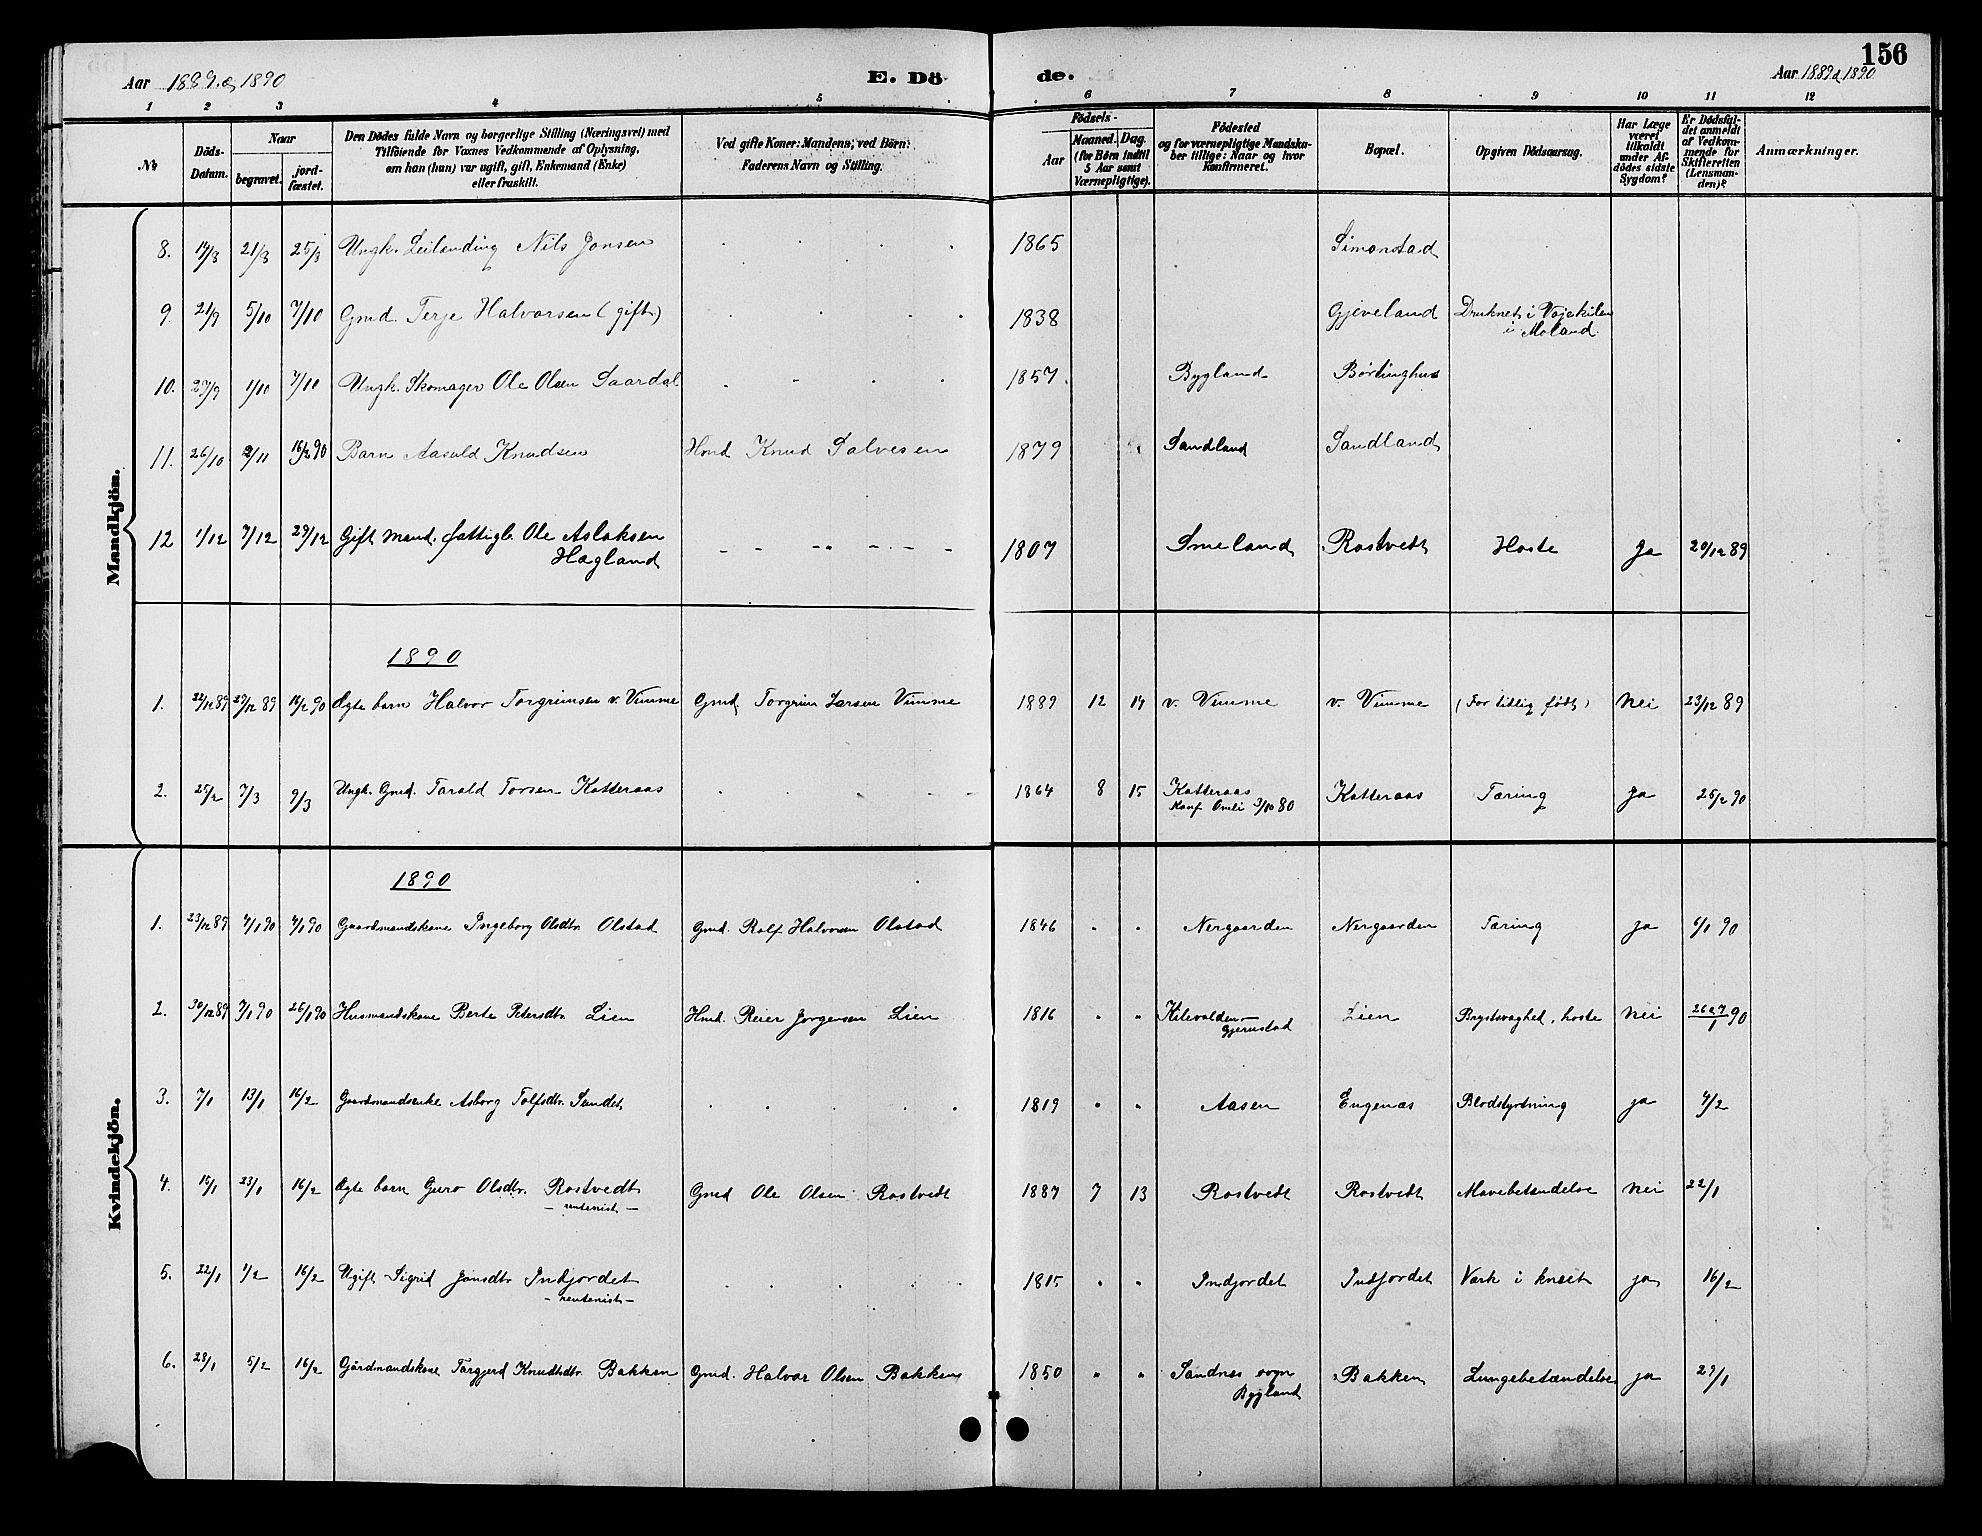 156
Aar 1889 og 1890
E. Dö
de.
Aar 1889 & 1890
1 2 3 4 5 6 7 8 9 10 11 12
No
Döds-Datum.
Naar
begravet.
jord-fæstet.
Den Dödes fulde Navn og borgerlige Stilling (Næringsvei) med
Tilföiende for Voxnes Vedkommende af Oplysning,
om han (hun) var ugift, gift, Enkemand (Enke)
eller fraskilt.
Ved gifte Koner: Mandens; ved Börn:
Faderens Navn og Stilling.
Födsels-
Aar
Maaned. Dag.
(for Børn indtil
5 Aar samt
Værnepligtige).
Födested
og for værnepligtige Mandska-
ber tillige: Naar og hvor
konfirmeret.
Bopæl.
Opgiven Dödsaarsag.
Har Læge
været
tilkaldt
under Af-
dödes sidste
Sygdom?
Er Dödsfal-
det anmeldt
af Vedkom-
mende for
Skifteretten
(Lensman-
den)?
Anmærkninger.
Mandkjön.
8. 21/3 25/3 Ungk. Leilending Nils Jonsen 1865 Simonstad
9. 21/9 5/10 7/10 Gmd. Terje Halvorsen (gift) 1838 Gjeveland Druknet i Vajekilen
i Moland.
10. 27/9 1/10 7/10 Ungk. Skomager Ole Olsen Saardal 1857. Bygland Börlinghus
11. 26/10 2/11 16/2 90 Barn Aasuld Knudsen Hmd Knud Salvesen 1879 Sandland Sandland
12 1/12 7/12 29/12 Gift mand, fattigl. Ole Aslaksen
Hægland 1807 Smeland Rostvedt Hoste Ja 20/12 89
1890
1. 22/12 89 29/12 89 16/2 90 Ægte barn Halvor Torgrimsen v. Vimme Gmd Torgrim Larsen Vimme 1889 12 14 v. Vimme v. Vimme (For tidlig født) Nei 23/12 89
2. 25/2 7/3 9/3 Ungk. Gmd. Tarald Torsen Katteraas 1864 8 15 Katteraas
Konf Omli 3/10 80 Katteraas Tæring Ja 26/2 90
Kvindekjön.
1890
1. 23/12 89 4/1 90 4/1 90 Gaardmandskone Ingeborg Olsdtr. Olstad Gmd. Rolf Halvorsen Olstad 1846 " " Nergaarden Nergaarden Tæring ja 6/1 90
2. 30/12 89 7/1 90 26/1 90 Husmandskone Berte Petersdtr. Lien Hmd. Reier Jørgensen Lien 1816 " " Kilevolden
Gjerrestad Lien Brystsvaghed, hoste Nei 26 & 7/1 90
3. 7/1 13/1 16/2 Gaardmandsenke Asborg Tolfsdtr. Sundet 1819 " " Aasen Engenæs Blodstyrtning ja 4/2
4. 15/1 23/1 16/2 Ægte barn Guro Olsdtr. Rostvedt Gmd Ole Olsen Rostvedt 1887 7 13 Rostvedt Rostvedt Mavebetændelse Nei 22/1
— rentenist —
5. 22/1 1/2 16/2 Ugift Sigrid Jonsdtr Indjordet 1815 " " Indjordet Indjordet Værk i knæet ja 16/2
— rentenist —
6. 28/1 5/2 16/2 Gårdmandskone Targjerd Knudsdtr. Bakken Gmd. Halvor Olsen Bakken 1850 " " Sandnes sogn
Bygland Bakken Lungebetændelse ja 29/1